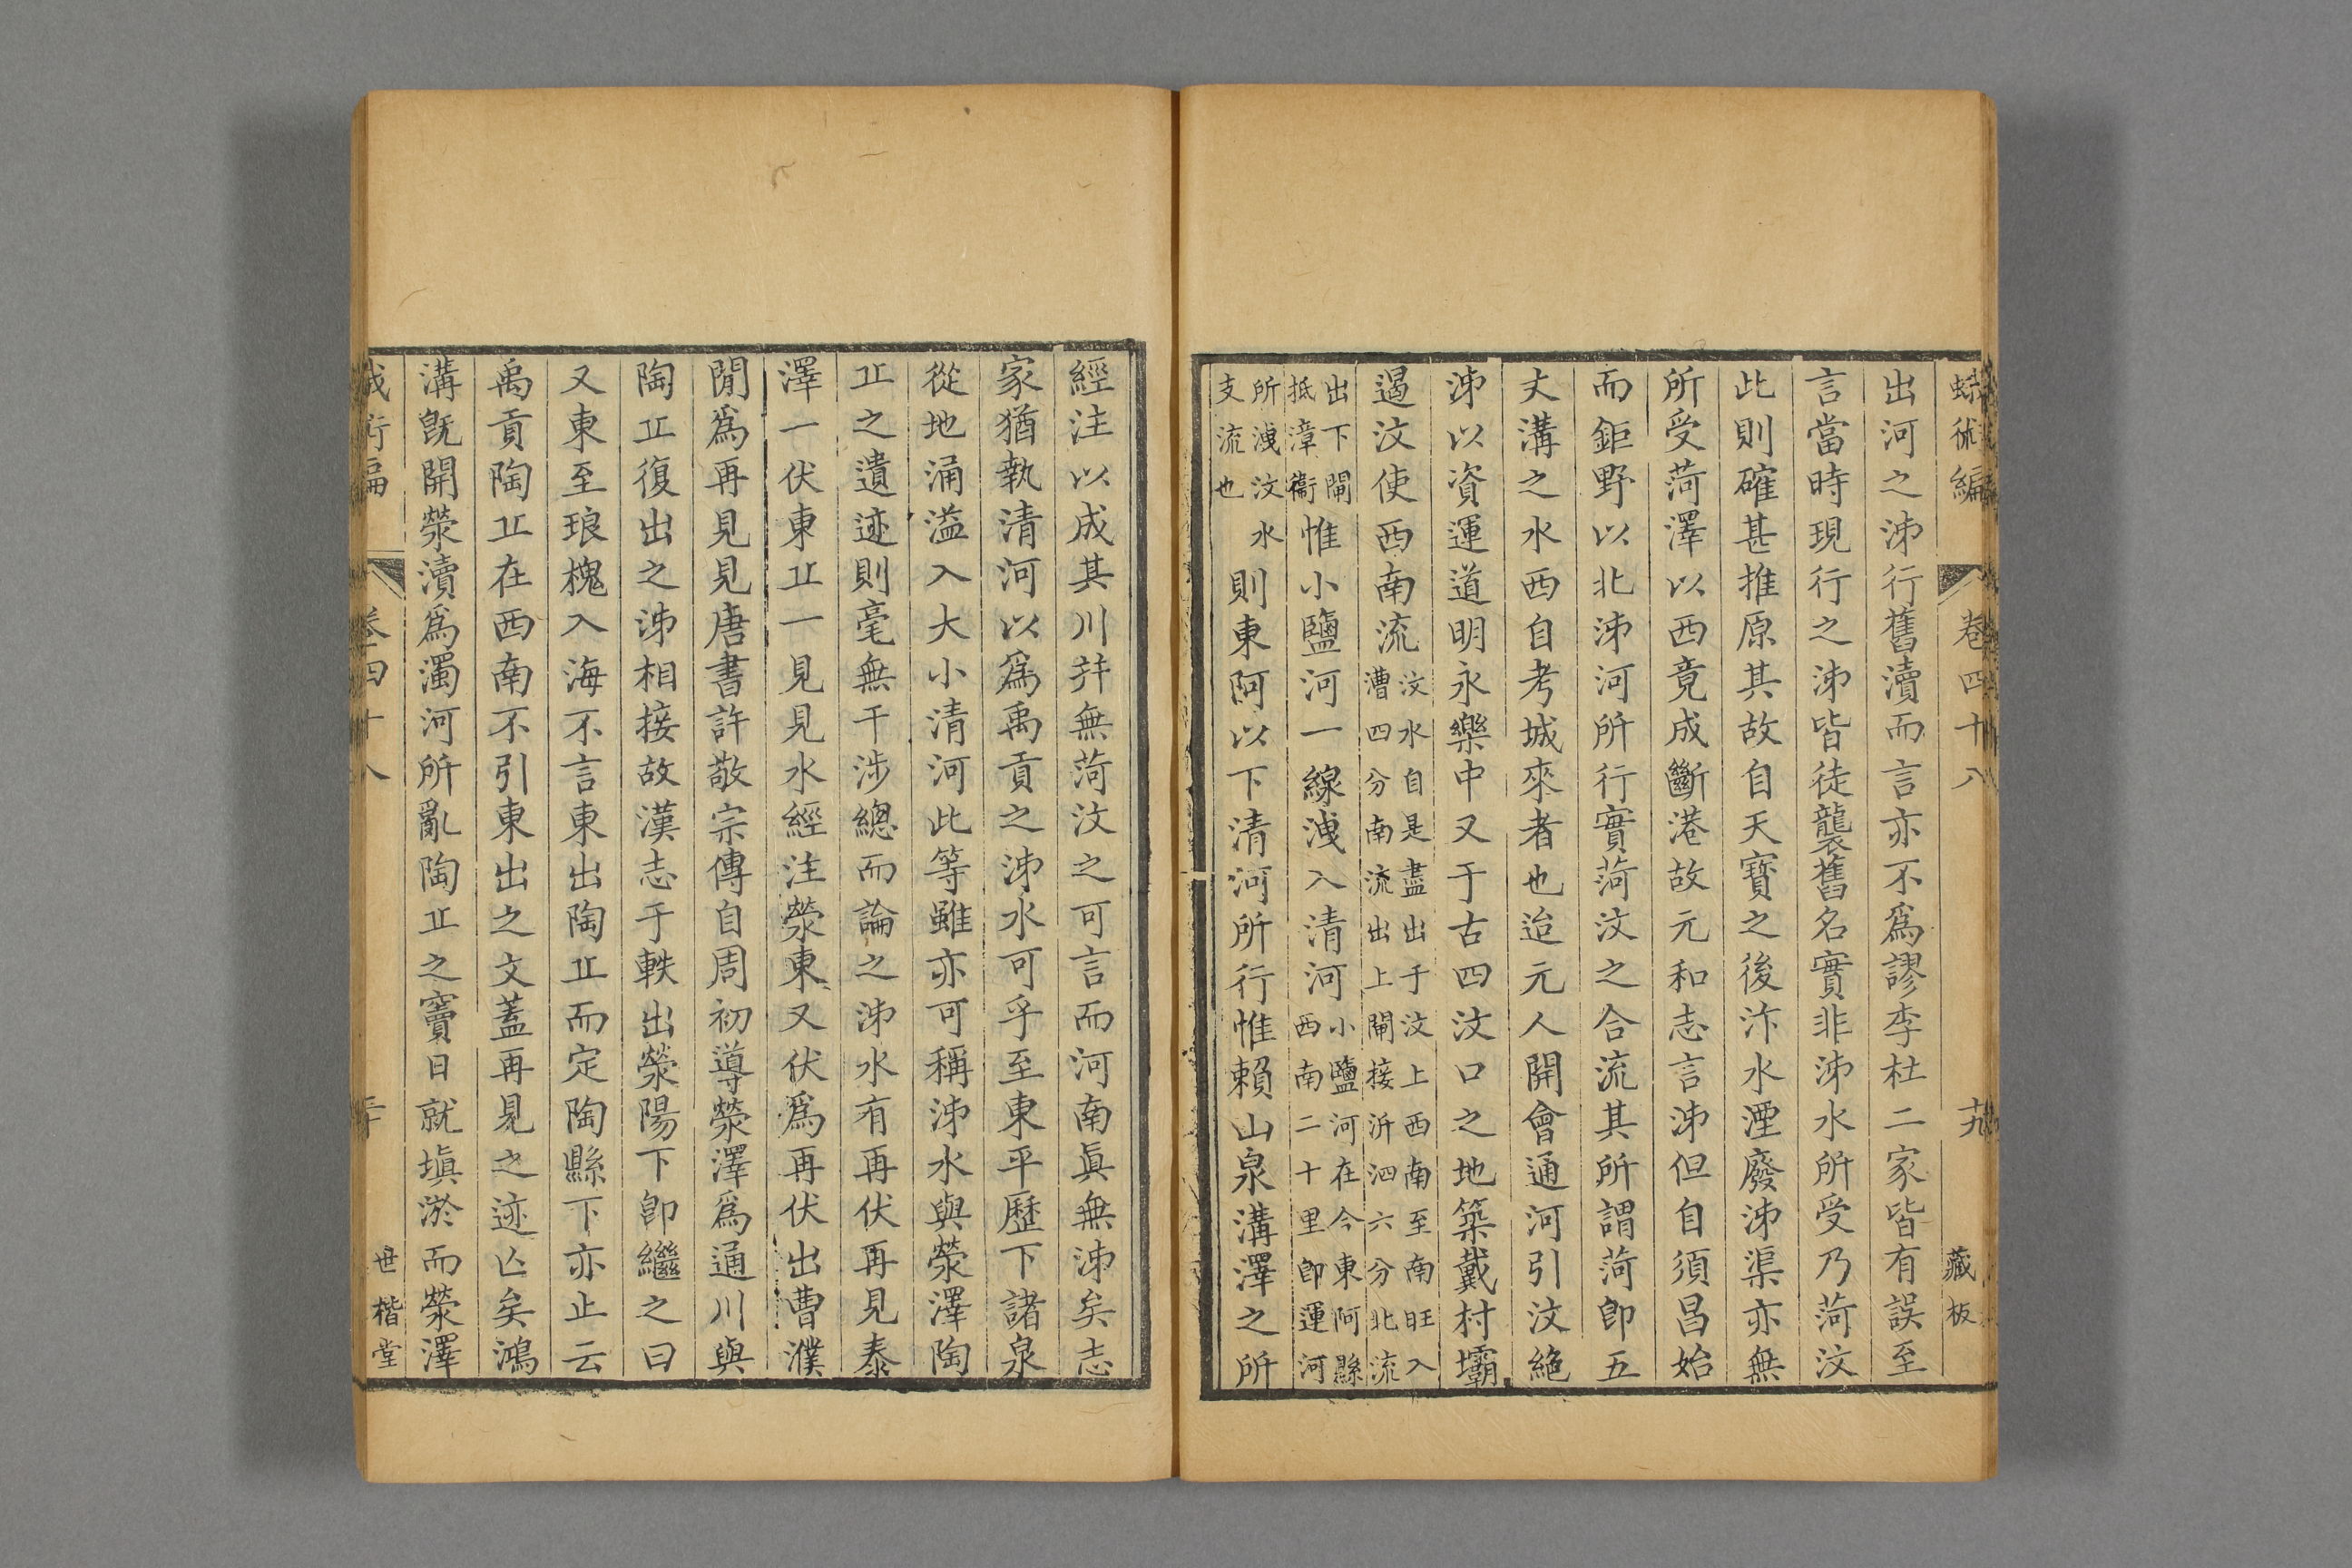 蛾術編 卷四十八 十九 藏板
出河之泲行舊瀆而言亦不爲謬李杜二家皆有誤至
言當時現行之泲皆徒襲舊名實非泲水所受乃菏汶
此則確甚推原其故自天寶之後汴水湮廢泲渠亦無
所受菏澤以西竟成斷港故元和志言泲但自須昌始
而鉅野以北泲河所行實菏汶之合流其所謂菏卽五
丈溝之水西自考城來者也迨元人開會通河引汶絶
泲以資運道明永樂中又于古四汶口之地築戴村壩
遏汶使西南流汶水自是盡出于汶上西南至南旺入漕四分南流出上閘接沂泗六分北流
出下閘抵漳衞惟小鹽河一線洩入清河小鹽河在今東阿縣西南二十里卽運河
所洩汶水支流也則東阿以下清河所行惟賴山泉溝澤之所
經注以成其川幷無菏汶之可言而河南眞無泲矣志
家猶執清河以爲禹貢之泲水可乎至東平歷下諸泉
從地涌溢入大小清河此等雖亦可稱泲水與滎澤陶
丠之遺迹則毫無干涉總而論之泲水有再伏再見泰
澤一伏東丠一見見水經注滎東又伏爲再伏出曹濮
閒爲再見見唐書許敬宗傳自周初導滎澤爲通川與
陶丠復出之泲相接故漢志于軼出滎陽下卽繼之曰
又東至琅槐入海不言東出陶丠而定陶縣下亦止云
禹貢陶丠在西南不引東出之文蓋再見之迹亾矣鴻
溝旣開滎瀆爲濁河所亂陶丠之竇日就塡淤而滎澤
蛾術編 卷四十八 二十 世楷堂